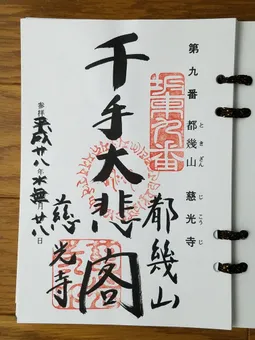 第九番 都幾山 慈光寺
ときざん じこうじ
坂東九番
千手大悲閣
都幾山
慈光寺
参拝 平成廿八年水無月廿八日